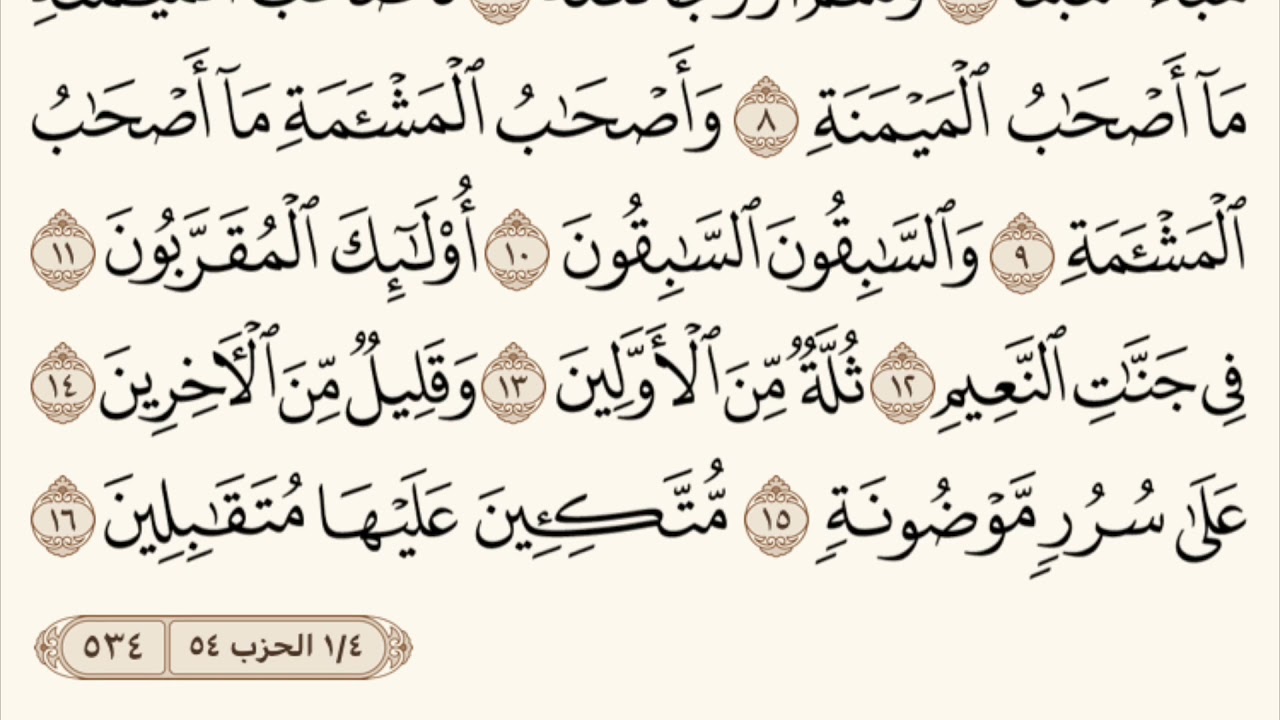 مَآ أَصْحَٰبُ ٱلْمَيْمَنَةِ ٨ وَأَصْحَٰبُ ٱلْمَشْـَٔمَةِ مَآ أَصْحَٰبُ
ٱلْمَشْـَٔمَةِ ٩ وَٱلسَّٰبِقُونَ ٱلسَّٰبِقُونَ ١٠ أُو۟لَٰٓئِكَ ٱلْمُقَرَّبُونَ ١١
فِى جَنَّٰتِ ٱلنَّعِيمِ ١٢ ثُلَّةٌ مِّنَ ٱلْأَوَّلِينَ ١٣ وَقَلِيلٌ مِّنَ ٱلْءَاخِرِينَ ١٤
عَلَىٰ سُرُرٍ مَّوْضُونَةٍ ١٥ مُّتَّكِـِٔينَ عَلَيْهَا مُتَقَٰبِلِينَ ١٦
١/٤ الحزب ٥٤ ٥٣٤